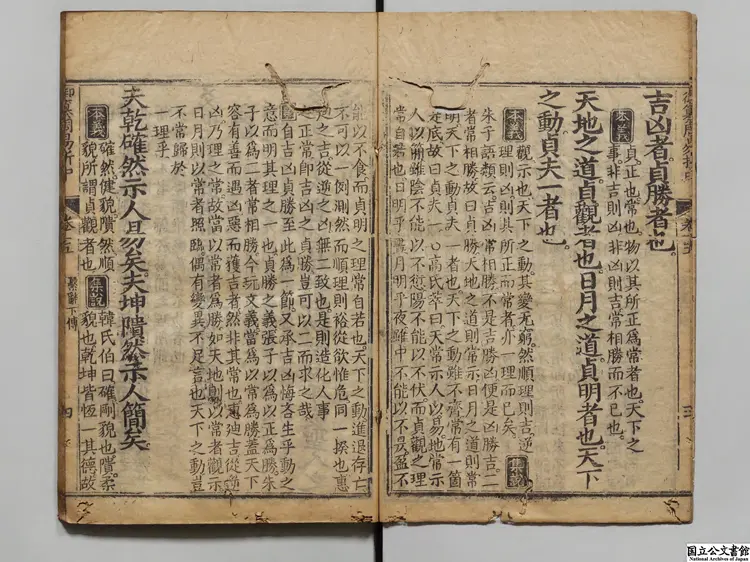 吉凶者貞勝者也
本義
貞正也常也物以其所正為常者也天下之
事非吉則凶非凶則吉常相勝而不已也
天地之道貞觀者也日月之道貞明者也天下
之動貞夫一者也
本義
觀示也天下之動其變无窮然順理則吉逆
理則凶則其所正而常者亦一理而已矣
集說
朱子語類云吉凶常相勝不是吉勝凶便是凶勝吉二
者常相勝故曰貞勝天地之道則常示日月之道則常
明天下之動貞夫一者也天下之動雖不齊常有一箇
是底故曰貞夫一○高氏萃曰天常示人以易地常示
人以簡雖陰不能以不愆陽不能以不伏而貞觀之理
常自若也日明乎晝月明乎夜雖中不能以不昃盈不
能以不食而貞明之理常自若也天下之動進退存亡
不可以一例測然而順理則裕從欲惟危同一揆也惠
廸之吉從逆之凶無二致也是則造化人事
之正常即吉凶之貞勝豈可以二而求之哉
自吉凶貞勝至此為一節又承吉凶悔吝生乎動之
意而明其理之一也貞勝之義張子以為以正為勝朱
子以為二者常相勝今玩文義當為以常為勝蓋天下
容有善而遇凶惡而獲吉者然非其常也惠廸吉從逆
凶乃理之常故當以常者為勝如天地則以常者觀示
日月則以常者照臨偶有變異不足言也天下之動豈
不常歸於
一理乎
夫乾確然示人易矣夫坤隤然示人簡矣
本義
確然健貌隤然順
貌所謂貞觀者也
集說
韓氏伯曰確剛貌也隤柔
貌也乾坤皆恆一其德故
卷十五
繫辭下傳
国立公文書館
National Archives of Japan